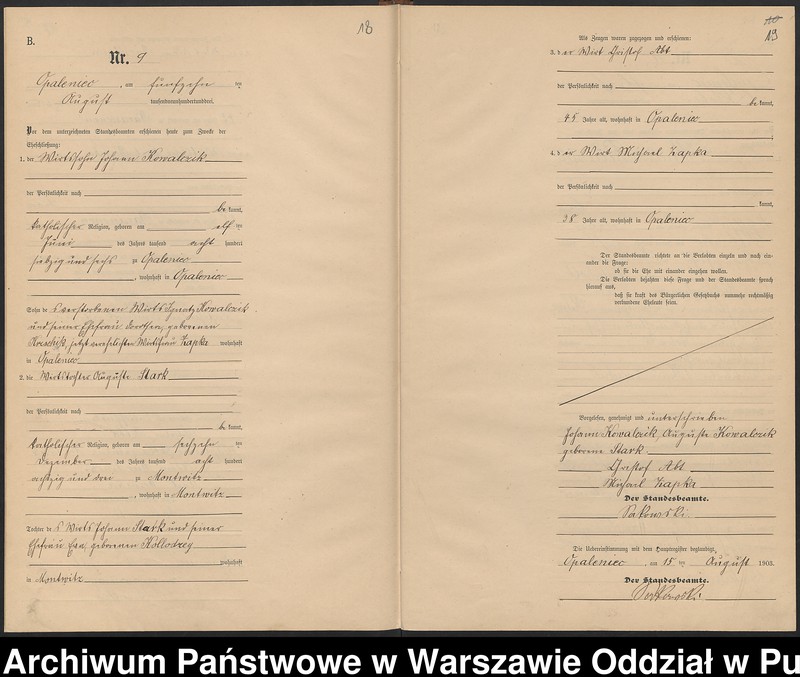 B.
18
Nr. 9
Opaleniec, am fünfzehn ten
August tausendneunhundertunddrei.
Vor dem unterzeichneten Standesbeamten erschienen heute zum Zwecke der
Eheschließung:
1. der Wirtssohn Johann Kowalczik
der Persönlichkeit nach
be kannt,
katholischer Religion, geboren am elf ten
Juni des Jahres tausend acht hundert
siebzig und sechs zu Opaleniec
, wohnhaft in Opaleniec
Sohn des verstorbenen Wirts Ignatz Kowalczik
und seiner Ehefrau Dorothea, geborenen
jetzt verehelichten Wirtsfrau Zapka wohnhaft
in Opaleniec
2. die Wirtstochter Auguste Stark
der Persönlichkeit nach
be kannt,
katholischer Religion, geboren am sechzehn ten
Dezember des Jahres tausend acht hundert
achtzig und drei zu Montwitz
, wohnhaft in Montwitz
Tochter des Wirts Johann Stark und seiner
Ehefrau Eva, geborenen Kollodzey
wohnhaft
in Montwitz
19
Als Zeugen waren zugezogen und erschienen:
3. der Wirt Christof Abt
der Persönlichkeit nach
be kannt,
45 Jahre alt, wohnhaft in Opaleniec
4. der Wirt Michael Zapka
der Persönlichkeit nach
kannt,
38 Jahre alt, wohnhaft in Opaleniec
Der Standesbeamte richtete an die Verlobten einzeln und nach ein-
ander die Frage:
ob sie die Ehe mit einander eingehen wollen.
Die Verlobten bejahten diese Frage und der Standesbeamte sprach
hierauf aus,
daß sie kraft des Bürgerlichen Gesetzbuchs nunmehr rechtmäßig
verbundene Eheleute seien.
Vorgelesen, genehmigt und unterschrieben
Johann Kowalczik, Auguste Kowalczik
geborene Stark
Christof Abt
Michael Zapka
Der Standesbeamte.
Sakowski.
Die Uebereinstimmung mit dem Hauptregister beglaubigt,
Opaleniec, am 15 ten August 1903.
Der Standesbeamte.
Archiwum Państwowe w Warszawie Oddział w Pu